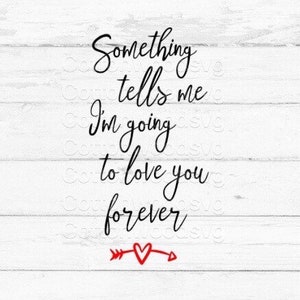 Something
tells me
I'm going
to love you
forever